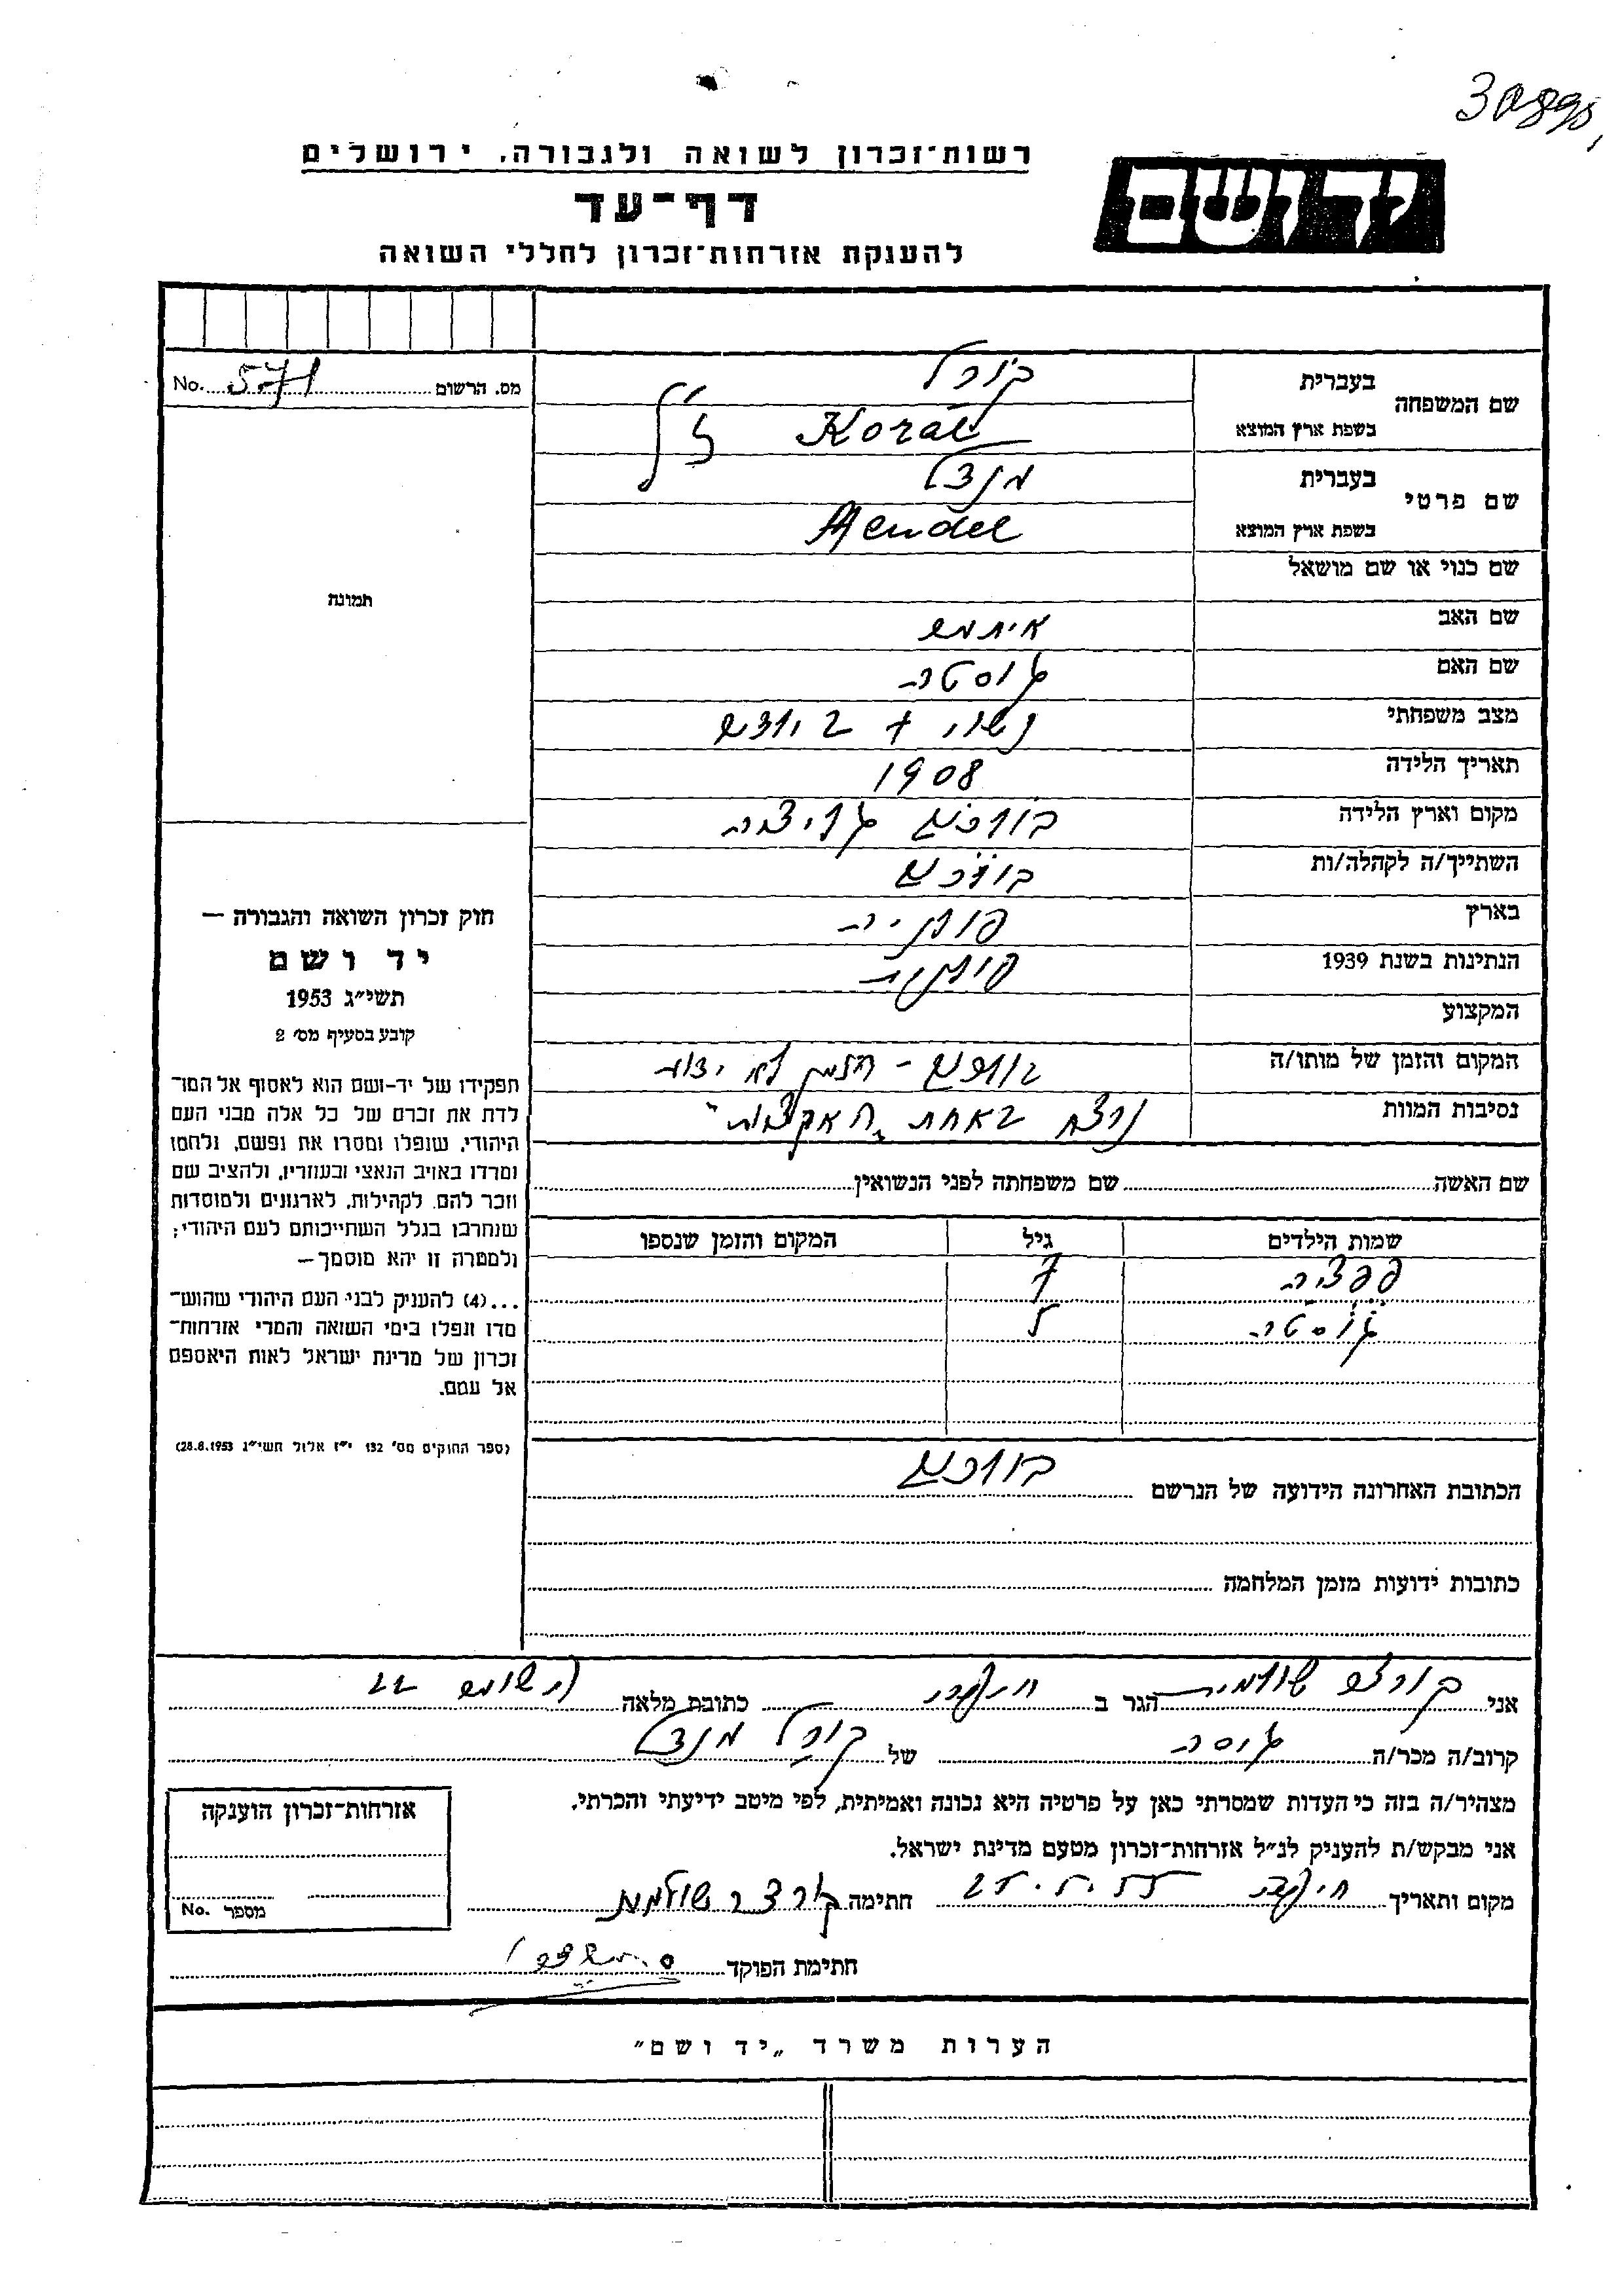 רשות־זכרון לשואה ולגבורה, ירושלים
דף־עד
להענקת אזרחות־זכרון לחללי השואה
יד ושם
מס. הרשום 571 No.
שם המשפחה
בעברית קורל
בשפת ארץ המוצא Koral
שם פרטי
בעברית מנדל
בשפת ארץ המוצא Mendel
שם כנוי או שם מושאל
שם האב
שם האם גוסטה
מצב משפחתי נשוי + 2 ילדים
תאריך הלידה 1908
מקום וארץ הלידה גליציה
השתייך/ה לקהלה/ות
בארץ פולניה
הנתינות בשנת 1939 פולנית
המקצוע
המקום והזמן של מותו/ה הזמן לא ידוע
נסיבות המוות נרצח באחת האקציות
תמונה
חוק זכרון השואה והגבורה —
יד ושם
תשי״ג 1953
קובע בסעיף מס׳ 2
תפקידו של יד-ושם הוא לאסוף אל המו־
לדת את זכרם של כל אלה מבני העם
היהודי, שנפלו ומסרו את נפשם, נלחמו
ומרדו באויב הנאצי ובעוזריו, ולהציב שם
וזכר להם, לקהילות, לארגונים ולמוסדות
שנחרבו בגלל השתייכותם לעם היהודי;
ולמטרה זו יהא מוסמך—
...(4) להענק לבני העם היהודי שהוש־
מדו ונפלו בימי השואה והמרי אזרחות־
זכרון של מדינת ישראל לאות היאספם
אל עמם.
(ספר החוקים מס׳ 132 י״ז אלול תשי״ג 28.8.1953)
שם האשה שם משפחתה לפני הנשואין
שמות הילדים גיל המקום והזמן שנספו
7
5
הכתובת האחרונה הידועה של הנרשם
כתובות ידועות מזמן המלחמה
אני שולמית הגר ב כתובת מלאה 22
קרוב/ה מכר/ה של קורל מנדל
מצהיר/ה בזה כי העדות שמסרתי כאן על פרטיה היא נכונה ואמיתית, לפי מיטב ידיעתי והכרתי.
אני מבקש/ת להעניק לנ״ל אזרחות־זכרון מטעם מדינת ישראל.
מקום ותאריך חתימה שולמית
חתימת הפוקד
אזרחות־זכרון הוענקה
מספר No.
הערות משרד „יד ושם״